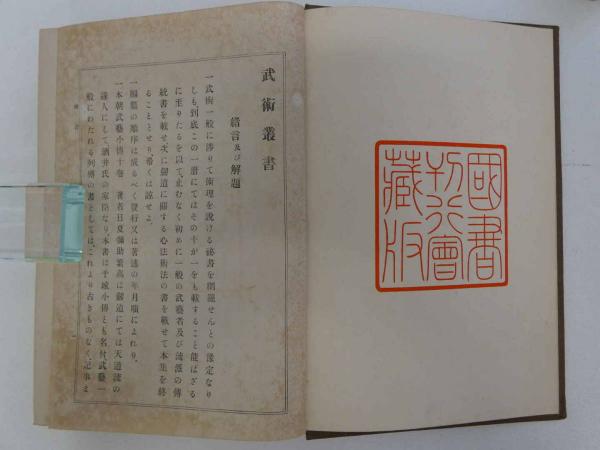 國書
刊行會
藏版
武術叢書
緒言及び解題
一武術一般に渉りて術理を說ける祕書を網羅せんとの豫定なり
しも、到底この一册にてはその十が一をも載すること能はざる
に至りたるを以て、止むなく初めに一般の武藝者及び流派の傳
統書を載せ次に劍道に關する心法術法の書を載せて本集を終
ることとせり、希くは諒せよ。
一編纂の順序は成るべく發行又は著述の年月順によれり。
一本朝武藝小傳十卷 著者日夏彌助繁高は劍道にては天道流の
達人にして、酒井氏の家臣なり、本書は干城小傳とも名付、武藝一
般にわたれる列傳の書としては、これより古きものなく、記事ま
緒言
一